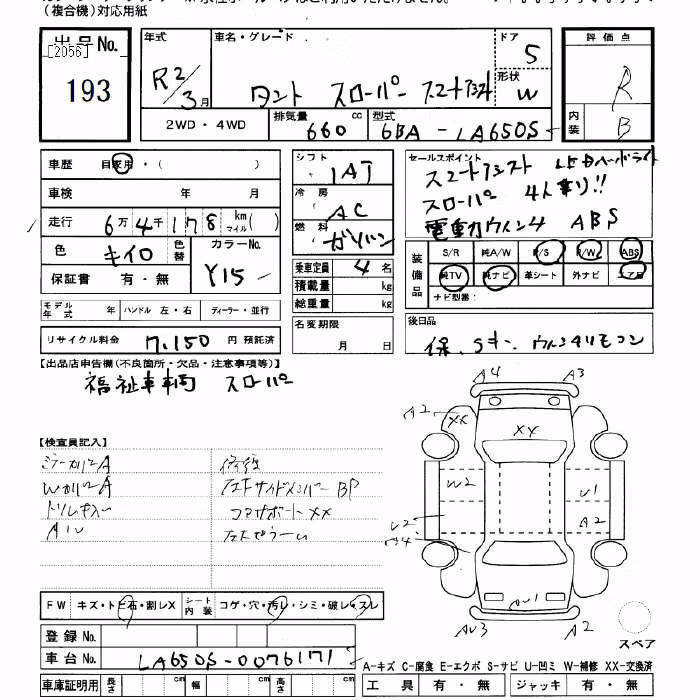 (複合機)対応用紙
出品No.
[2056]
193
年式
R2/3月
車名・グレード
タント スローパー スマートアシスト
ドア 5
形状 W
評価点 R
内装 B
2WD・4WD
排気量 660 cc
型式 6BA-LA650S
車歴 自家用・( )
車検 年 月
走行 6万4千178 km マイル( )
色 キイロ
色替
カラーNo. Y15
保証書 有・無
シフト IAT
冷房 AC
燃料 ガソリン
乗車定員 4名
積載量 kg
総重量 kg
セールスポイント
スマートアシスト LEDヘッドライト
スローパー 4人乗り!!
電動ウインチ ABS
装備品
S/R 純A/W P/S P/W ABS
純TV 純ナビ 革シート 外ナビ エアB
ナビ型番:
モデル年式 年
ハンドル 左・右
ディーラー・並行
リサイクル料金 7,150円 預託済
名変期限 月 日
後日品
保、Sキー、ウインチリモコン
【出品店申告欄(不良箇所・欠品・注意事項等)】
福祉車輌 スローパー
【検査員記入】
ミラーカバーA
Wカバ2A
トリムキズ
修復
左Fサイドメンバー BP
コアサポート XX
A4
A3
A2
XX
XX
W2
U1
U2
A2
AU1
AU3
A2
スペア
FW キズ・トビ石・割レX
シート内装 コゲ・穴・汚レ・シミ・破レ・スレ
登録No.
車台No. LA650S-0076171
A-キズ C-腐食 E-エクボ S-サビ U-凹ミ W-補修 XX-交換済
車庫証明用 長さ cm 幅 cm 高さ cm
工具 有・無 ジャッキ 有・無